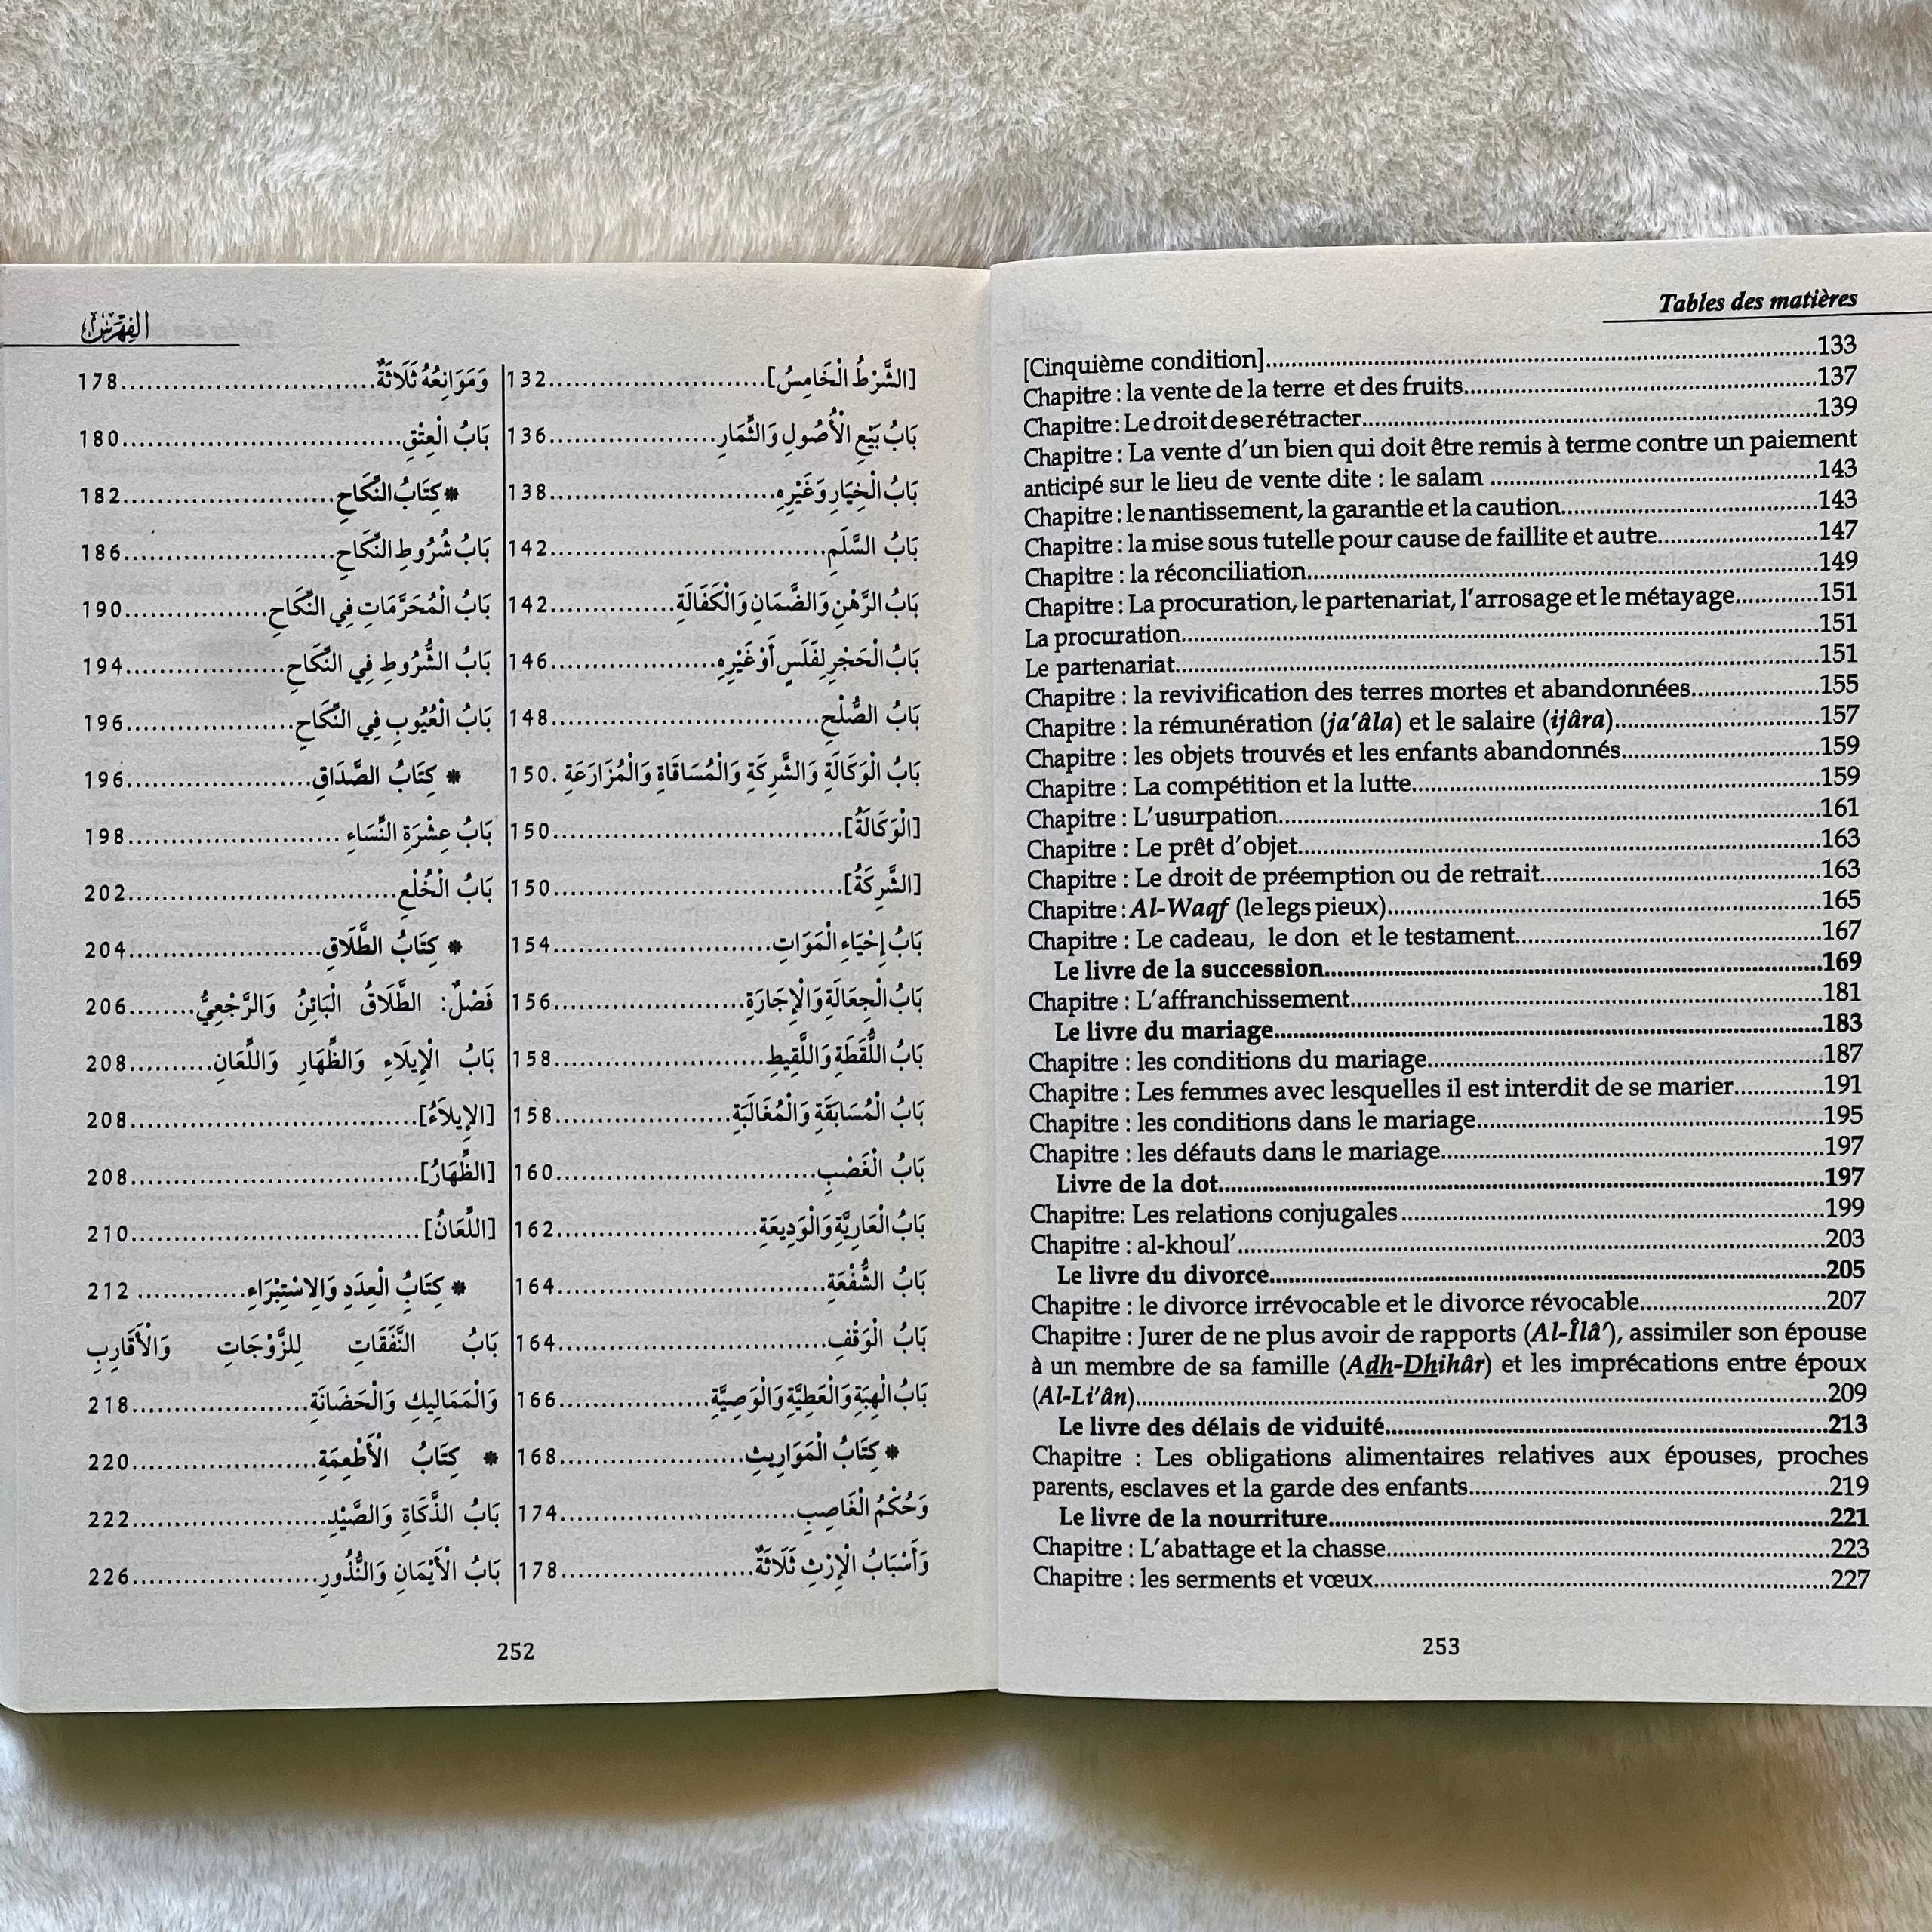 الفِهْرَسُ
[الشَّرْطُ الْخَامِسُ]......................132
بَابُ بَيْعِ الْأُصُولِ وَالثِّمَارِ.................136
بَابُ الْخِيَارِ وَغَيْرِهِ.......................138
بَابُ السَّلَمِ............................142
بَابُ الرَّهْنِ وَالضَّمَانِ وَالْكَفَالَةِ.............142
بَابُ الْحَجْرِ لِفَلَسٍ أَوْ غَيْرِهِ.................146
بَابُ الصُّلْحِ............................148
بَابُ الْوَكَالَةِ وَالشَّرِكَةِ وَالْمُسَاقَاةِ وَالْمُزَارَعَةِ .150
[الْوَكَالَةُ].............................150
[الشَّرِكَةُ].............................150
بَابُ إِحْيَاءِ الْمَوَاتِ......................154
بَابُ الْجِعَالَةِ وَالْإِجَارَةِ...................156
بَابُ اللُّقَطَةِ وَاللَّقِيطِ.....................158
بَابُ الْمُسَابَقَةِ وَالْمُغَالَبَةِ..................158
بَابُ الْغَصْبِ...........................160
بَابُ الْعَارِيَّةِ وَالْوَدِيعَةِ....................162
بَابُ الشُّفْعَةِ...........................164
بَابُ الْوَقْفِ...........................164
بَابُ الْهِبَةِ وَالْعَطِيَّةِ وَالْوَصِيَّةِ...............166
* كِتَابُ الْمَوَارِيثِ...................168
وَحُكْمُ الْغَاصِبِ........................174
وَأَسْبَابُ الْإِرْثِ ثَلَاثَةٌ....................178
وَمَوَانِعُهُ ثَلَاثَةٌ..........................178
بَابُ الْعِتْقِ............................180
* كِتَابُ النِّكَاحِ......................182
بَابُ شُرُوطِ النِّكَاحِ.....................186
بَابُ الْمُحَرَّمَاتِ فِي النِّكَاحِ..............190
بَابُ الشُّرُوطِ فِي النِّكَاحِ................194
بَابُ الْعُيُوبِ فِي النِّكَاحِ.................196
* كِتَابُ الصَّدَاقِ...................196
بَابُ عِشْرَةِ النِّسَاءِ .....................198
بَابُ الْخُلْعِ..........................202
* كِتَابُ الطَّلَاقِ...................204
فَصْلٌ: الطَّلَاقُ الْبَائِنُ وَالرَّجْعِيُّ........206
بَابُ الْإِيلَاءِ وَالظِّهَارِ وَاللِّعَانِ..........208
[الإِيلَاءُ]............................208
[الظِّهَارُ]............................208
[اللِّعَانُ]............................210
* كِتَابُ الْعِدَدِ وَالِاسْتِبْرَاءِ............212
بَابُ النَّفَقَاتِ لِلزَّوْجَاتِ وَالْأَقَارِبِ
وَالْمَمَالِيكِ وَالْحَضَانَةِ.................218
* كِتَابُ الْأَطْعِمَةِ.................220
بَابُ الذَّكَاةِ وَالصَّيْدِ...................222
بَابُ الْأَيْمَانِ وَالنُّذُورِ..................226
252
Tables des matières
[Cinquième condition]..........133
Chapitre : la vente de la terre et des fruits..........137
Chapitre : Le droit de se rétracter..........139
Chapitre : La vente d'un bien qui doit être remis à terme contre un paiement
anticipé sur le lieu de vente dite : le salam ..........143
Chapitre : le nantissement, la garantie et la caution..........143
Chapitre : la mise sous tutelle pour cause de faillite et autre..........147
Chapitre : la réconciliation..........149
Chapitre : La procuration, le partenariat, l'arrosage et le métayage..........151
La procuration..........151
Le partenariat..........151
Chapitre : la revivification des terres mortes et abandonnées..........155
Chapitre : la rémunération (ja'âla) et le salaire (ijâra)..........157
Chapitre : les objets trouvés et les enfants abandonnés..........159
Chapitre : La compétition et la lutte..........159
Chapitre : L'usurpation..........161
Chapitre : Le prêt d'objet..........163
Chapitre : Le droit de préemption ou de retrait..........163
Chapitre : Al-Waqf (le legs pieux)..........165
Chapitre : Le cadeau, le don et le testament..........167
Le livre de la succession..........169
Chapitre : L'affranchissement..........181
Le livre du mariage..........183
Chapitre : les conditions du mariage..........187
Chapitre : Les femmes avec lesquelles il est interdit de se marier..........191
Chapitre : les conditions dans le mariage..........195
Chapitre : les défauts dans le mariage..........197
Livre de la dot..........197
Chapitre: Les relations conjugales ..........199
Chapitre : al-khoul'..........203
Le livre du divorce..........205
Chapitre : le divorce irrévocable et le divorce révocable..........207
Chapitre : Jurer de ne plus avoir de rapports (Al-Îlâ'), assimiler son épouse
à un membre de sa famille (Adh-Dhihâr) et les imprécations entre époux
(Al-Li'ân)..........209
Le livre des délais de viduité..........213
Chapitre : Les obligations alimentaires relatives aux épouses, proches
parents, esclaves et la garde des enfants..........219
Le livre de la nourriture..........221
Chapitre : L'abattage et la chasse..........223
Chapitre : les serments et vœux..........227
253